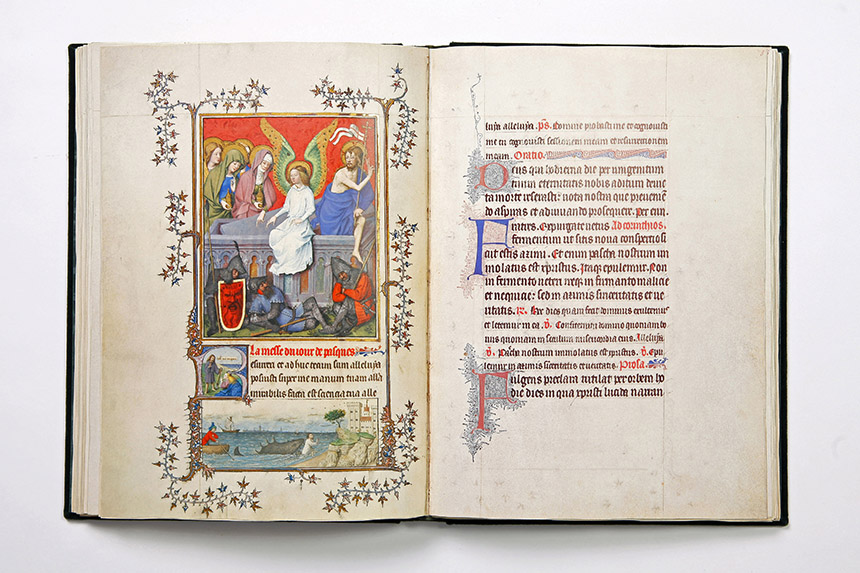 La messe du iour de pasques
esurrexi et adhuc tecum sum alleluya
posuisti super me manum tuam alle
mirabilis facta est sciencia tua alle
luya alleluya. ps. Domine probasti me et cognouisti
me tu cognouisti sessionem meam et resurrectionem
meam. Oratio.
Deus qui hodierna die per unigenitum
tuum eternitatis nobis aditum deuic
ta morte reserasti: uota nostra que preuenien
do aspiras et adiuuando prosequere. Per eun
Fratres. Expurgate uetus Ad corinthios.
fermentum ut sitis noua conspersio si
cut estis azimi. Et enim pascha nostrum im
molatus est xpristus. Itaqz epulemur. Non
in fermento ueteri neqz in firmanto malicie
et nequicie: sed in azimis sinceritatis et ue
ritatis. R. Hec dies quam fecit dominus exultemur
et letemur in ea. V. Confitemini domino quoniam bo
nus quoniam in seculum misericordia eius. Alleluya
V. Pascha nostrum immolatus est xpristus. V. Epu
lemur in azimis sinceritatis et ueritatis. Prosa.
Fulgens preclara rutilat per orbem ho
die dies in qua xpristi lucida narran